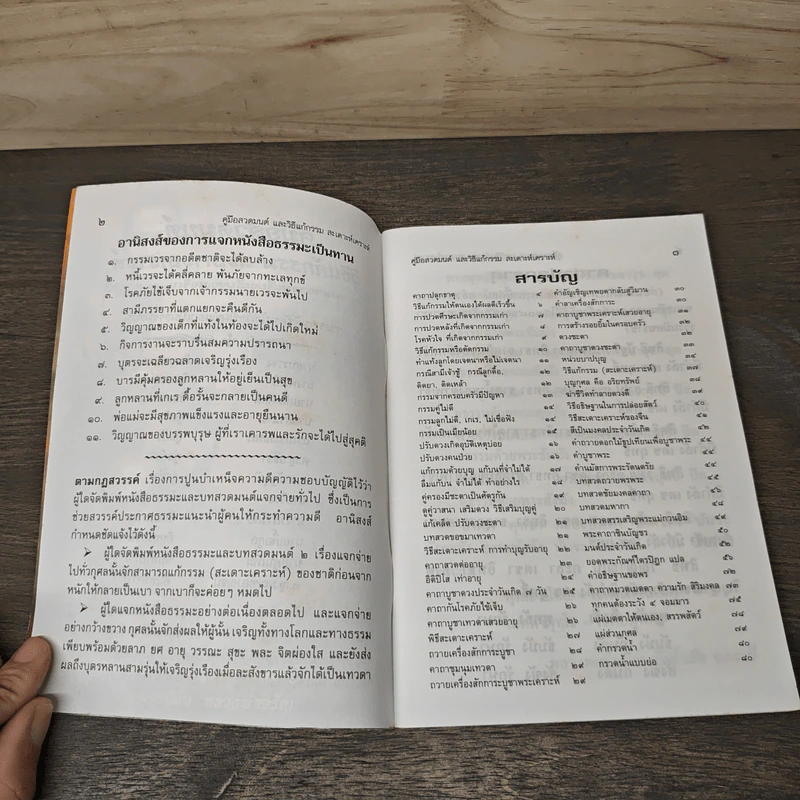 ๒ คู่มือสวดมนต์ และวิธีแก้กรรม สะเดาะห์เคราะห์
อานิสงส์ของการแจกหนังสือธรรมะเป็นทาน
๑. กรรมเวรจากอดีตชาติจะได้ลบล้าง
๒. หนี้เวรจะได้คลี่คลาย พ้นภัยจากทะเลทุกข์
๓. โรคภัยไข้เจ็บจากเจ้ากรรมนายเวรจะพ้นไป
๔. สามีภรรยาที่แตกแยกจะคืนดีกัน
๕. วิญญาณของเด็กที่แท้งในท้องจะได้ไปเกิดใหม่
๖. กิจการงานจะราบรื่นสมความปรารถนา
๗. บุตรจะเฉลียวฉลาดเจริญรุ่งเรือง
๘. บารมีคุ้มครองลูกหลานให้อยู่เย็นเป็นสุข
๙. ลูกหลานที่เกเร ดื้อรั้นจะกลายเป็นคนดี
๑๐. พ่อแม่จะมีสุขภาพแข็งแรงและอายุยืนนาน
๑๑. วิญญาณของบรรพบุรุษ ผู้ที่เราเคารพและรักจะได้ไปสู่สุคติ
ตามกฎสวรรค์ เรื่องการปูนบำเหน็จความดีความชอบบัญญัติไว้ว่า
ผู้ใดจัดพิมพ์หนังสือธรรมะและบทสวดมนต์แจกจ่ายทั่วไป ซึ่งเป็นการ
ช่วยสวรรค์ประกาศธรรมแนะนำผู้คนให้กระทำความดี อานิสงส์
กำหนดชัดแจ้งไว้ดังนี้
➢ ผู้ใดจัดพิมพ์หนังสือธรรมะและบทสวดมนต์ ๒ เรื่องแจกจ่าย
ไปทั่วกุศลนั้นจักสามารถแก้กรรม (สะเดาะเคราะห์) ของชาติก่อนจาก
หนักให้กลายเป็นเบา จากเบาก็จะค่อยๆ หมดไป
➢ ผู้ใดแจกหนังสือธรรมะอย่างต่อเนื่องตลอดไป และแจกจ่าย
อย่างกว้างขวาง กุศลนั้นจักส่งผลให้ผู้นั้น เจริญทั้งทางโลกและทางธรรม
เพียบพร้อมด้วยลาภ ยศ อายุ วรรณะ สุขะ พละ จิตผ่องใส และยังส่ง
ผลถึงบุตรหลานสามรุ่นให้เจริญรุ่งเรืองเมื่อละสังขารแล้วจักได้เป็นเทวดา
คู่มือสวดมนต์ และวิธีแก้กรรม สะเดาะห์เคราะห์ ๓
สารบัญ
คาถาปลุกธาตุ ๔
วิธีการทำให้ตนเองได้ผลดีเร็วขึ้น ๖
การปวดศีรษะเกิดจากกรรมเก่า ๗
การปวดหลังที่เกิดจากกรรมเก่า ๘
โรคหัวใจ ที่เกิดจากกรรมเก่า ๙
วิธีแก้กรรมหรือตัดกรรม ๑๐
ทำแท้งลูกโดยเจตนาหรือไม่เจตนา ๑๑
กรณีสามีเจ้าชู้ กรณีลูกดื้อ, ๑๒
ติดยา, ติดเหล้า ๑๒
กรรมจากครอบครัวมีปัญหา ๑๓
กรรมคู่ไม่ดี ๑๔
กรรมลูกไม่ดี, เกเร, ไม่เชื่อฟัง ๑๔
กรรมเป็นเมียน้อย ๑๕
ปรับดวงเกิดอุบัติเหตุบ่อย ๑๖
ปรับดวงคนป่วย ๑๖
แก้กรรมด้วยบุญ แก้บนที่จำไม่ได้ ๑๗
ลืมแก้บน จำไม่ได้ ทำอย่างไร ๑๘
คู่ครองมีชะตาเป็นศัตรูกัน ๑๙
ดูคู่วาสนา เสริมดวง วิธีเสริมบุญคู่ ๒๐
แก้เคล็ด ปรับดวงชะตา ๒๐
บทสวดขอขมาเทวดา ๒๑
วิธีสะเดาะเคราะห์ การทำบุญรับอายุ ๒๒
คาถาสวดต่ออายุ ๒๓
อิติปิโส เท่าอายุ ๒๔
คาถาบูชาดวงประจำวันเกิด ๗ วัน ๒๕
คาถากันโรคภัยไข้เจ็บ ๒๖
คาถาบูชาเทวดาเสวยอายุ ๒๖
พิธีสะเดาะเคราะห์ ๒๗
ถวายเครื่องสักการะบูชา ๒๘
คาถาชุมนุมเทวดา ๒๙
ถวายเครื่องสักการะบูชาพระเคราะห์ ๒๙
คำอัญเชิญเทพยดากลับสู่วิมาน ๓๐
คำลาเครื่องสักการะ ๓๐
คาถาบูชาพระเคราะห์เสวยอายุ ๓๑
การสร้างรอยยิ้มในครอบครัว ๓๒
ดวงชะตา ๓๒
คาถาบูชาดวงชะตา ๓๓
หน่วยบาปบุญ ๓๔
วิธีแก้กรรม (สะเดาะเคราะห์) ๓๗
บุญกุศล คือ อริยทรัพย์ ๓๘
ฆ่าชีวิตทำลายดวงดี ๓๙
วิธีอธิษฐานในการปล่อยสัตว์ ๔๐
วิธีสะเดาะเคราะห์ของจีน
สีเป็นมงคลประจำวันเกิด
คำถวายดอกไม้ธูปเทียนเพื่อบูชาพระ
คำบูชาพระ ๔๔
คำนมัสการพระรัตนตรัย ๔๔
บทสวดถวายพรพระ ๔๔
บทสวดชัยมงคลคาถา ๔๖
บทสวดมหากา ๔๘
บทสวดสรรเสริญพระแม่กวนอิม
พระคาถาชินบัญชร
มนต์ประจำวันเกิด
ยอดพระกัณฑ์ไตรปิฎก แปล ๕๖
คำอธิษฐานขอพร ๗๒
คำหมวดเมตตา ความรัก สิริมงคล ๗๓
ทุกคนต้องระวัง ๔ จอมมาร ๗๔
แผ่เมตตาให้ตนเอง, สรรพสัตว์ ๗๘
แผ่ส่วนกุศล ๗๙
คำกรวดน้ำ ๘๐
กรวดน้ำแบบย่อ ๘๐